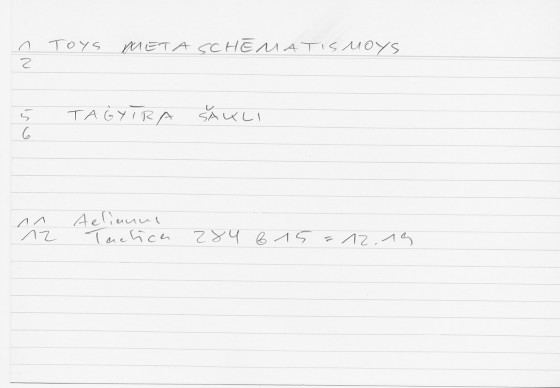 1 TOYS METASCHĒMATISMOYS
2
5 TAĠYĪRA ŠAKLI
6
11 Aelianus
12 Tactica 284 6 15 = 12.19